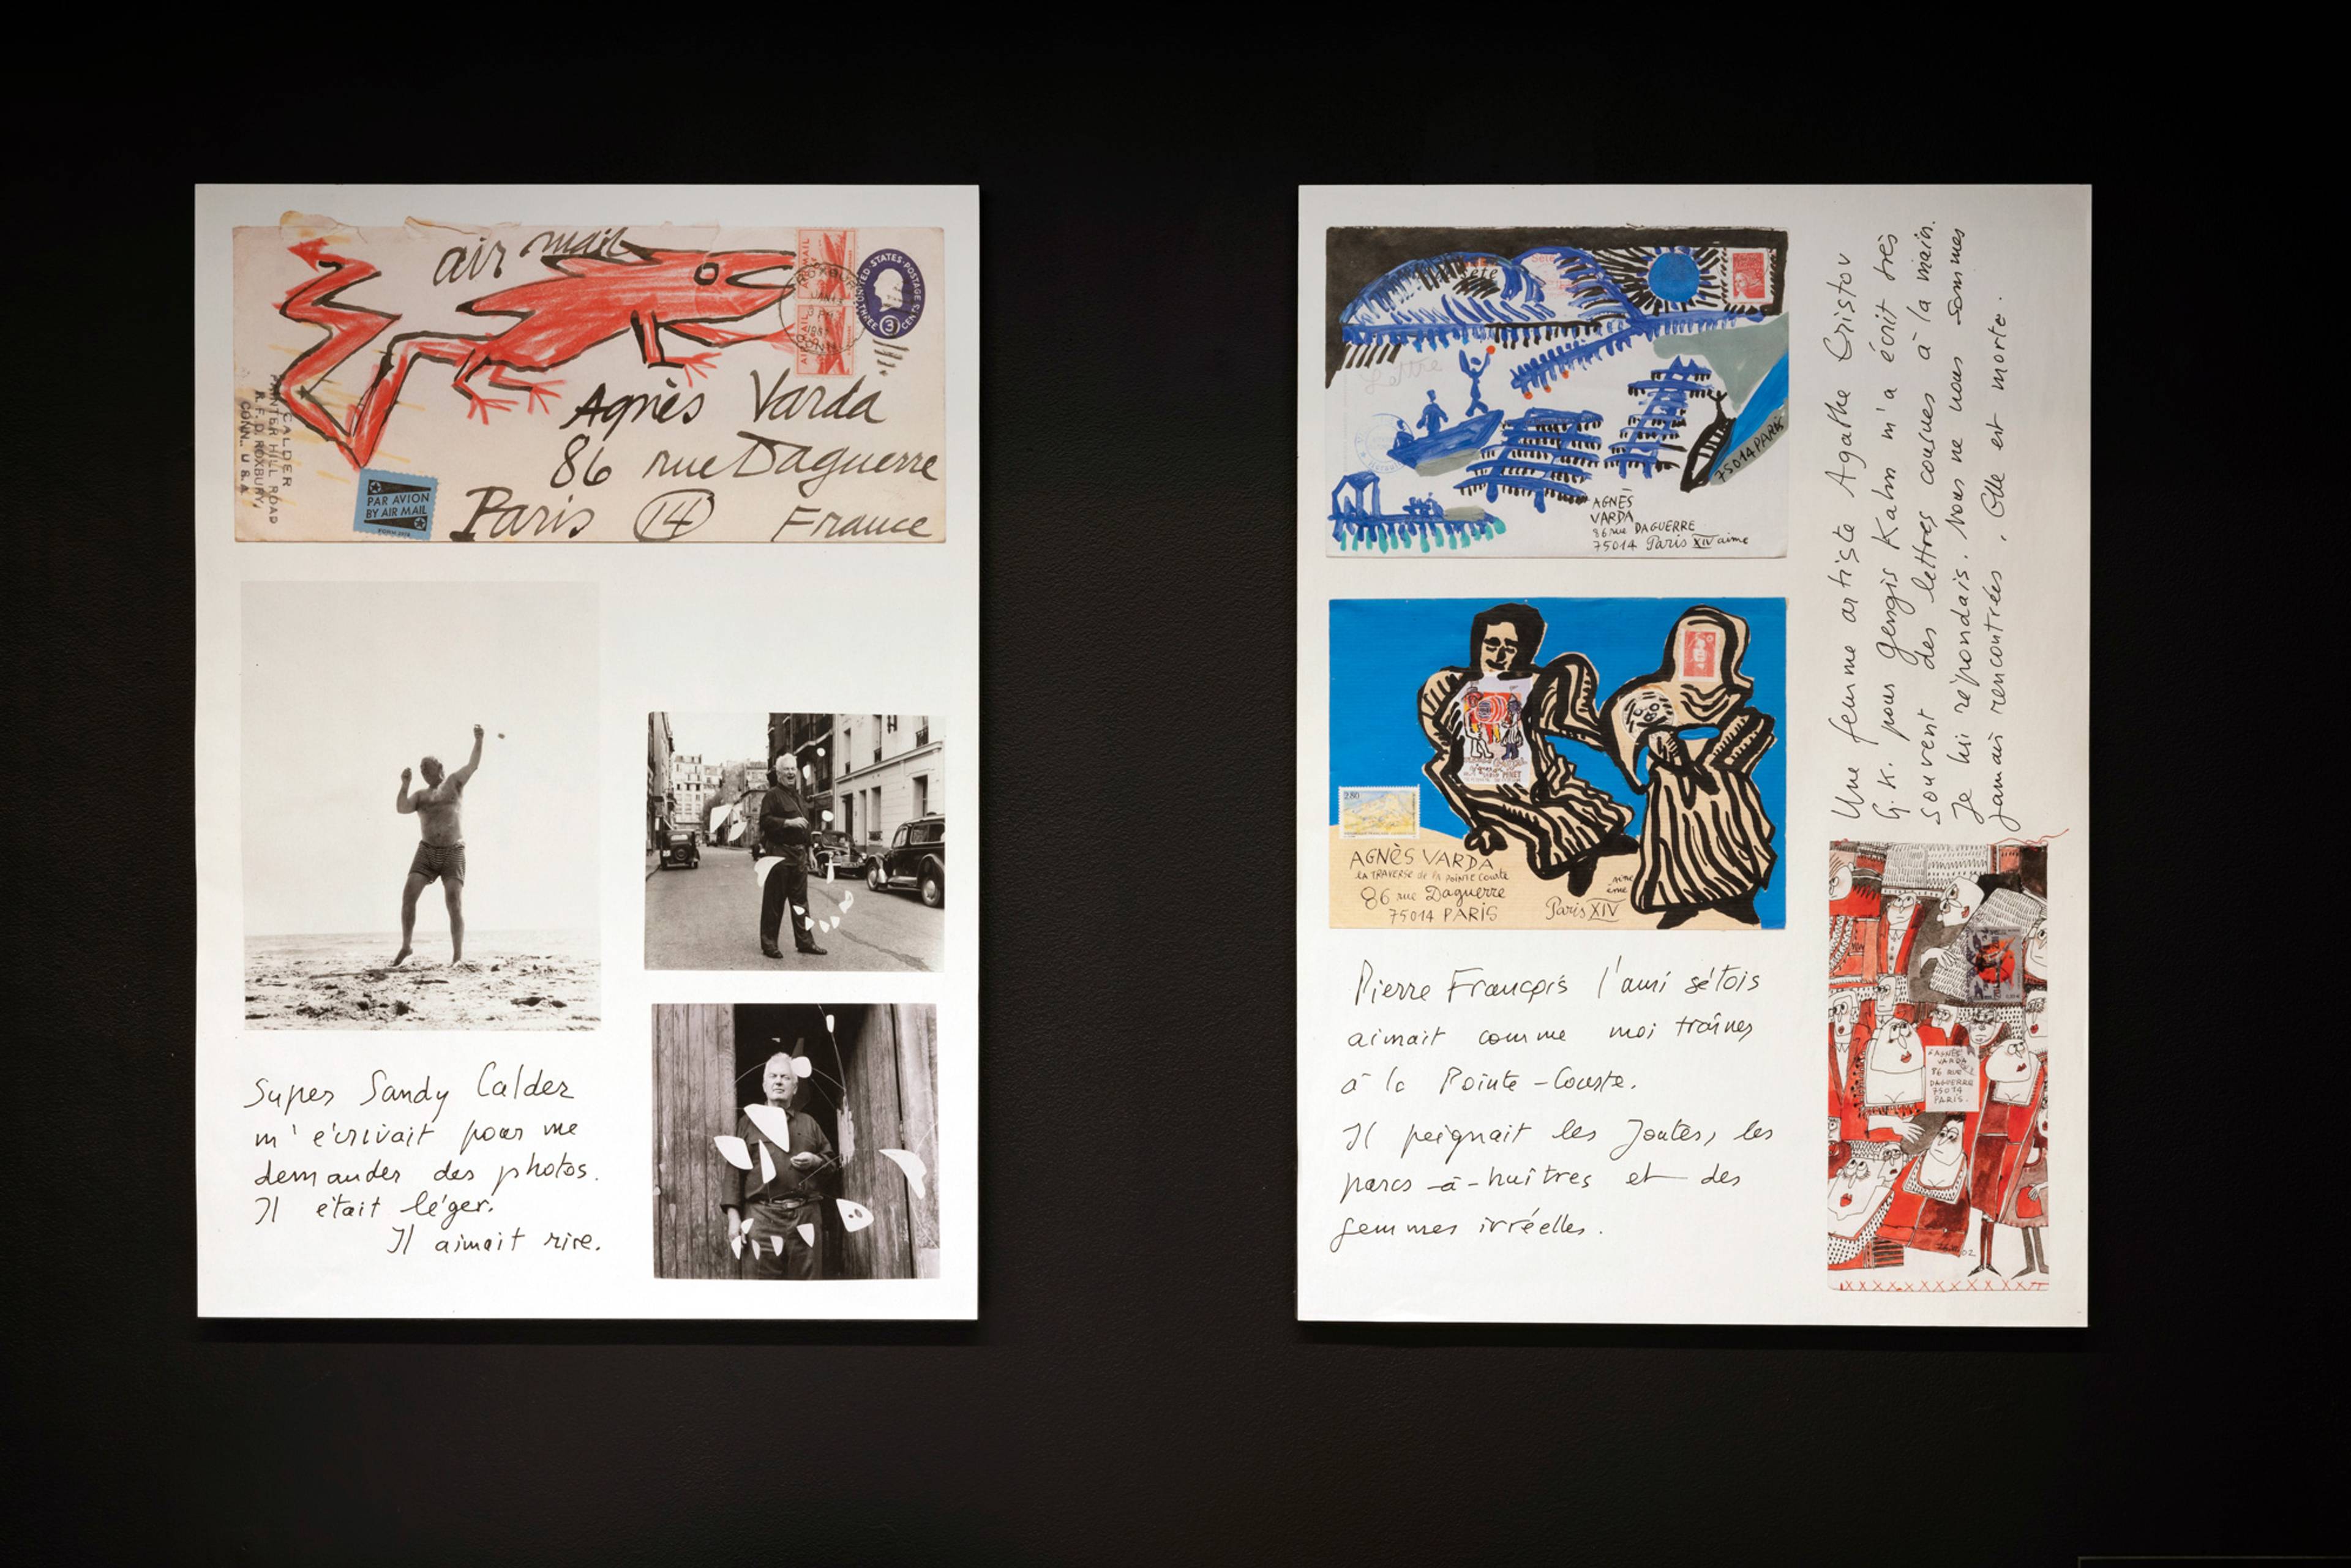 air mail
AIR MAIL
UNITED STATES POSTAGE
THREE CENTS
3
CONN
CALDER
PAINTER HILL ROAD
R. F. D. ROXBURY,
CONN., U.S.A.
PAR AVION
BY AIR MAIL
Agnès Varda
86 rue Daguerre
Paris 14 France
Super Sandy Calder
m'écrivait pour me
demander des photos.
Il était léger.
Il aimait rire.
Sète
Lettre
75014 PARIS
AGNÈS
VARDA
86 rue DAGUERRE
75014 Paris XIV aime
2.80
AGNÈS VARDA
LA TRAVERSE de la POINTE Courte
86 rue Daguerre
75014 PARIS
Paris XIV
aime
Pierre François l'ami sétois
aimait comme moi traîner
à la Pointe-Courte.
Il peignait les Joutes, les
parcs-à-huîtres et des
femmes irréelles.
Une femme artiste Agathe Cristov
G.K. pour Gengis Kahn m'a écrit très
souvent des lettres cousues à la main.
Je lui répondais. Nous ne nous sommes
jamais rencontrées. Elle est morte.
AGNÈS
VARDA
86 RUE
DAGUERRE
75014
PARIS.
02